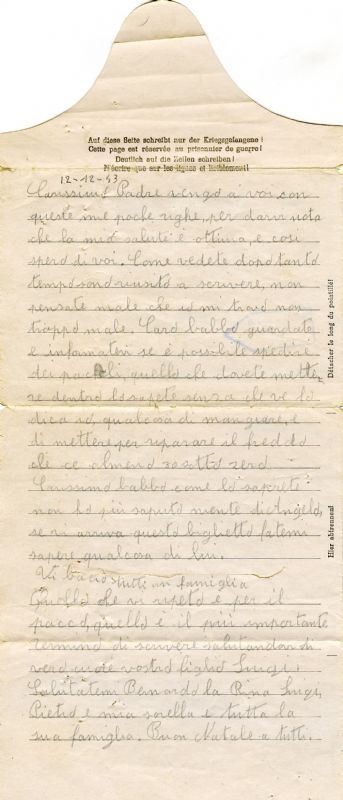 Auf diese Seite schreibt nur der Kriegsgefangene!
Cette page est réservée au prisonnier de guerre!
Deutlich auf die Zeilen schreiben!
N'écrire que sur les lignes et lisiblement!
12-12-43
Carissimo Padre vengo a voi con
queste mie poche righe, per darvi nota
che la mia salute è ottima, e così
spero di voi. Come vedete dopo tanto
tempo sono riuscito a scrivere, non
pensate male che io mi trovo non
troppo male. Caro babbo guardate
e informatevi se è possibile spedire
dei pacchi, quello che dovete mette-
re dentro lo sapete senza che ve lo
dica io, qualcosa di mangiare, e
di mettere per riparare il freddo
che ce almeno 20 sotto zero.
Carissimo babbo come lo saprete
non ho più saputo niente di Angelo,
se vi arriva questo biglietto fatemi
sapere qualcosa di lui.
Vi bacio tutti in famiglia
Quello che vi ripeto è per il
pacco, quello è il più importante
termino di scrivere salutandovi di
vero cuore vostro figlio Luigi.
Salutatemi Bernardo la Rina Luigi,
Pietro e mia sorella e tutta la
sua famiglia. Buon Natale a tutti.
Détacher le long du pointillé!
Hier abtrennen!